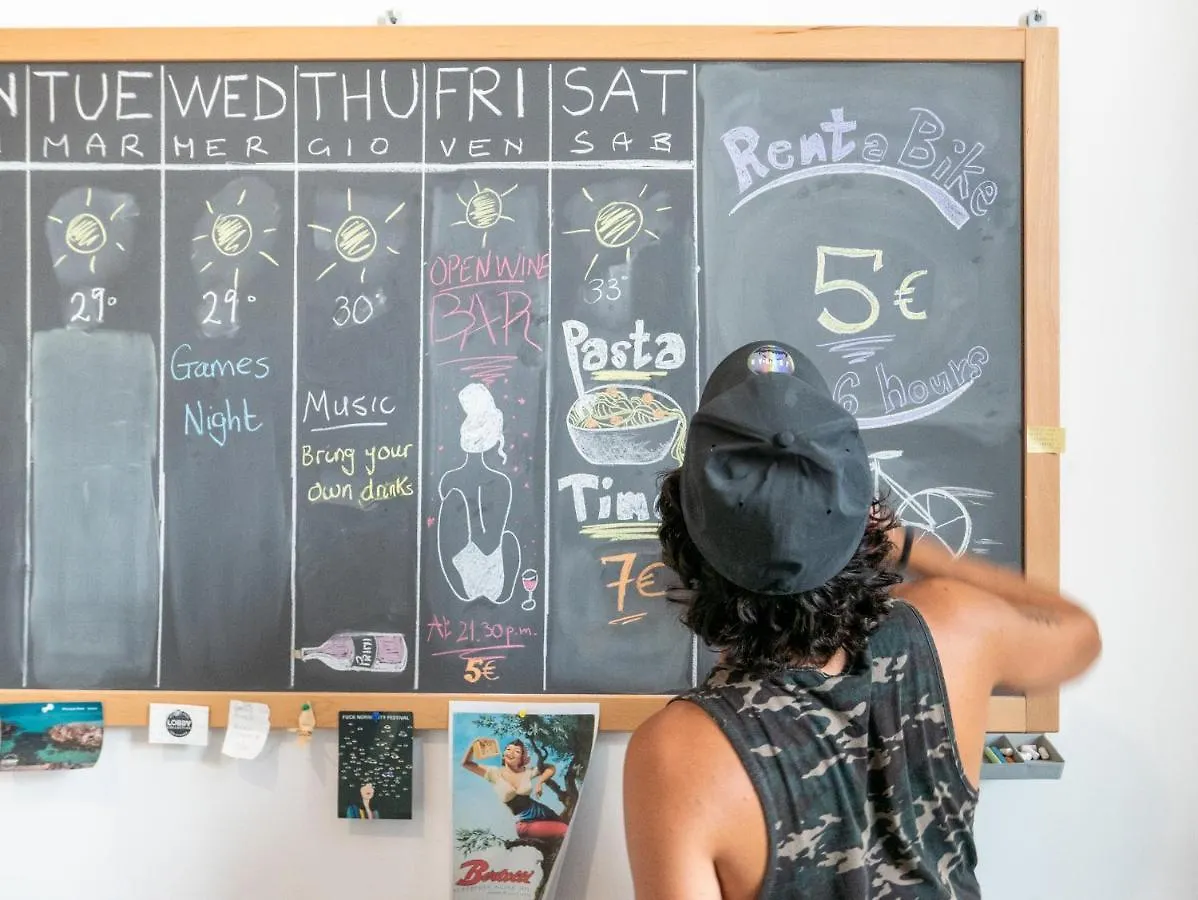 TUE
MAR
29°
WED
MER
29°
Games
Night
THU
GIO
30°
Music
Bring your
own drinks
PRIMI
FRI
VEN
OPEN WINE
BAR
At 21.30 p.m.
5€
SAT
SAB
33°
Pasta
Time
7€
Rent a Bike
5€
6 hours
LOBBY
FUCK NORMALITY FESTIVAL
Bertolli